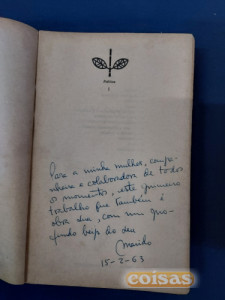 Para a minha mulher, compa-
nheira e colaboradora de todos
os momentos, este primeiro
trabalho que também é
obra sua, com um pro-
fundo beijo do seu
15-2-63
coisas